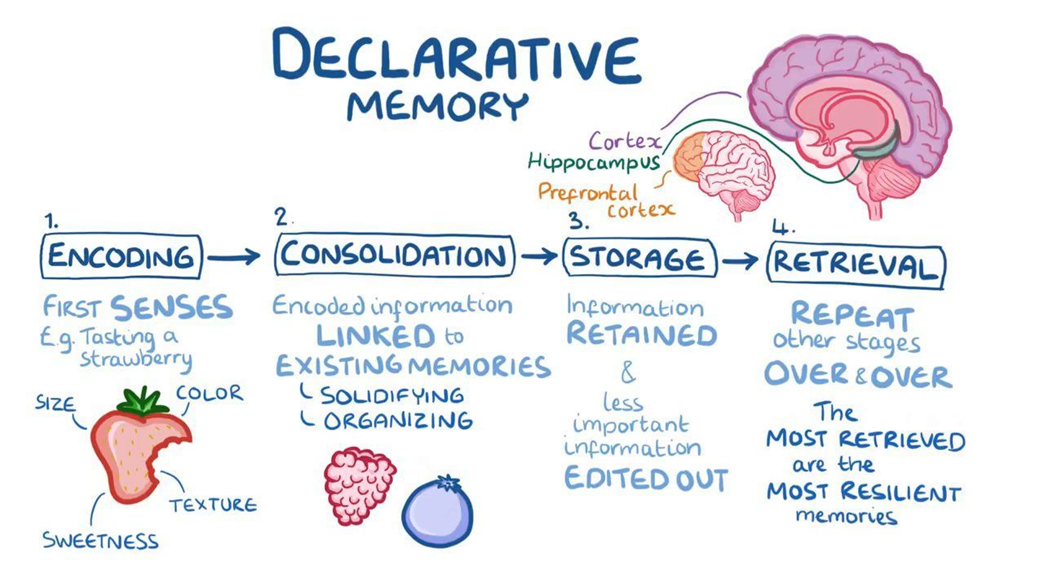 DECLARATIVE
MEMORY
Cortex
Hippocampus
Prefrontal
cortex
1.
ENCODING
FIRST SENSES
E.g. Tasting a
strawberry
SIZE
COLOR
TEXTURE
SWEETNESS
2.
CONSOLIDATION
Encoded information
LINKED to
EXISTING MEMORIES
SOLIDIFYING
ORGANIZING
3.
STORAGE
Information
RETAINED
&
less
important
information
EDITED OUT
4.
RETRIEVAL
REPEAT
other stages
OVER & OVER
The
MOST RETRIEVED
are the
MOST RESILIENT
memories